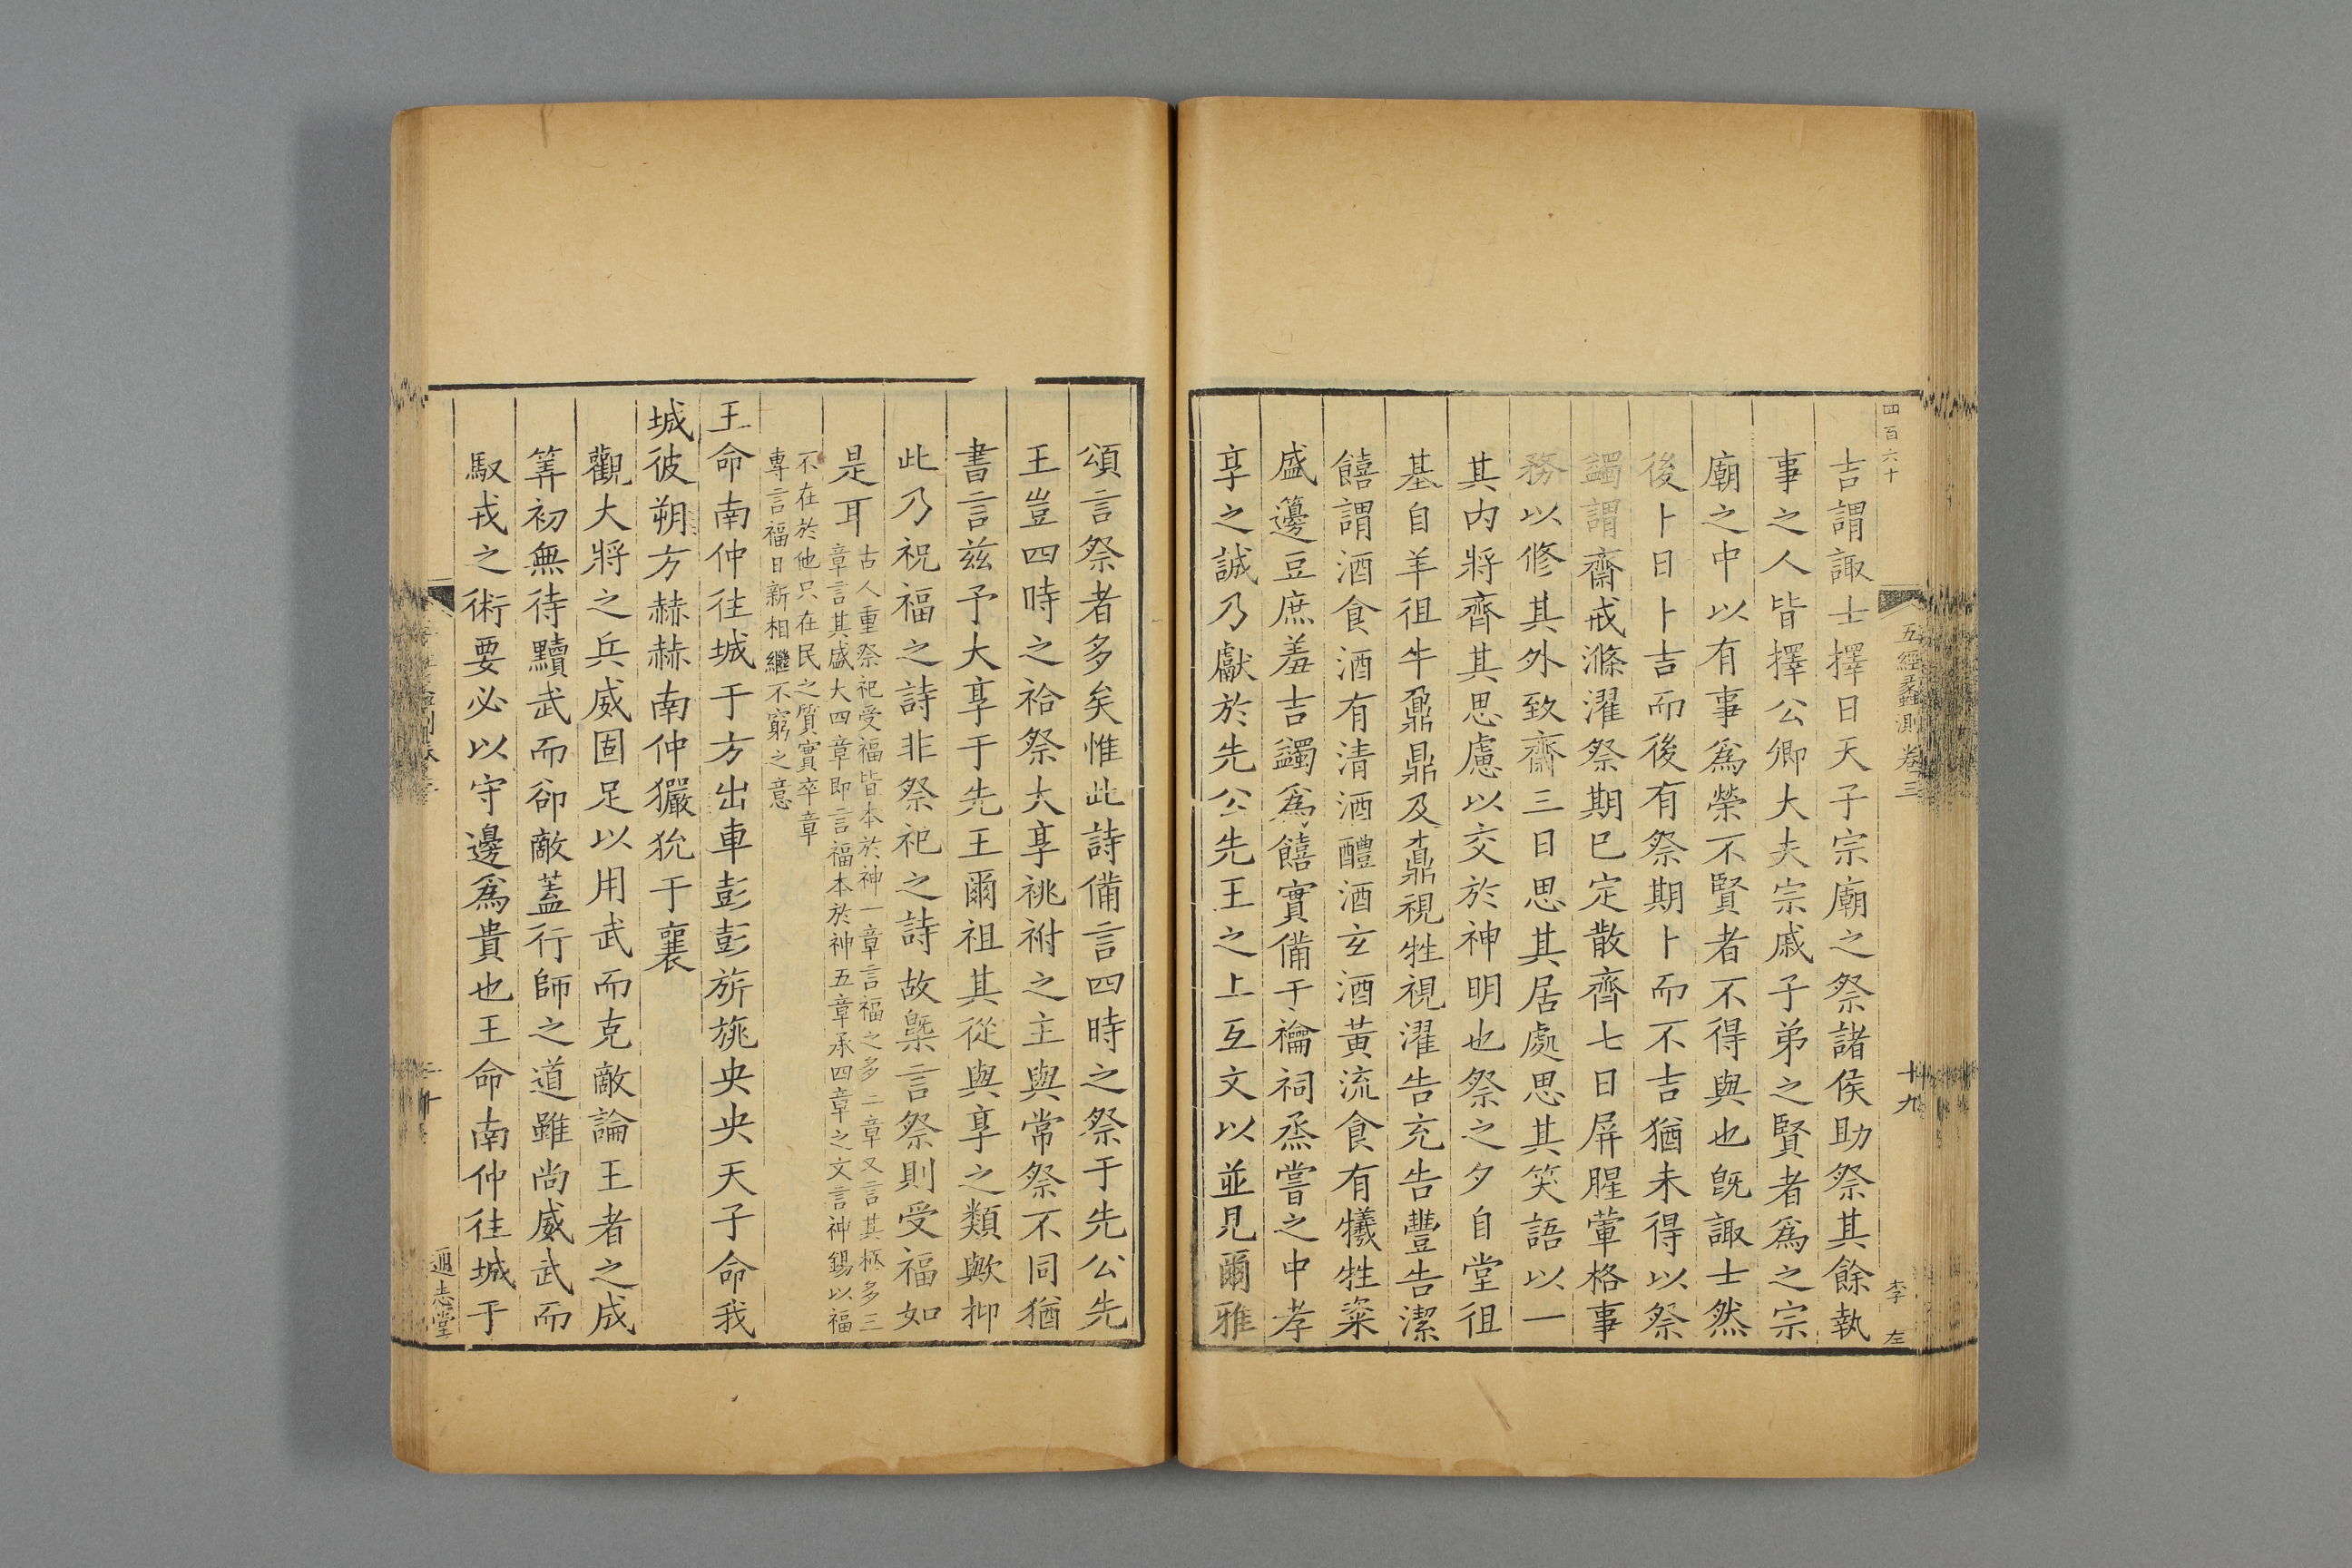 四百六十
五經蠡測卷三
十九
李
左
吉謂諏士擇日天子宗廟之祭諸侯助祭其餘執
事之人皆擇公卿大夫宗戚子弟之賢者爲之宗
廟之中以有事爲榮不賢者不得與也旣諏士然
後卜日卜吉而後有祭期卜而不吉猶未得以祭
蠲謂齋戒滌濯祭期已定散齊七日屏腥葷格事
務以修其外致齋三日思其居處思其笑語以一
其内將齊其思慮以交於神明也祭之夕自堂徂
基自羊徂牛鼐鼎及鼒視牲視濯告充告豐告潔
饎謂酒食酒有清酒醴酒玄酒黃流食有犧牲粢
盛籩豆庶羞吉蠲爲饎實備于禴祠烝嘗之中孝
享之誠乃獻於先公先王之上互文以並見爾雅
頌言祭者多矣惟此詩備言四時之祭于先公先
王豈四時之祫祭大享祧祔之主與常祭不同猶
書言兹予大享于先王爾祖其從與享之類歟抑
此乃祝福之詩非祭祀之詩故槩言祭則受福如
是耳
古人重祭祀受福皆本於神一章言福之多二章又言其極多三
章言其盛大四章即言福本於神五章承四章之文言神錫以福
不在於他只在民之質實卒章
專言福日新相繼不窮之意
王命南仲往城于方出車彭彭旂旐央央天子命我
城彼朔方赫赫南仲玁狁于襄
觀大將之兵威固足以用武而克敵論王者之成
筭初無待黷武而卻敵蓋行師之道雖尚威武而
馭戎之術要必以守邊爲貴也王命南仲往城于
通志堂